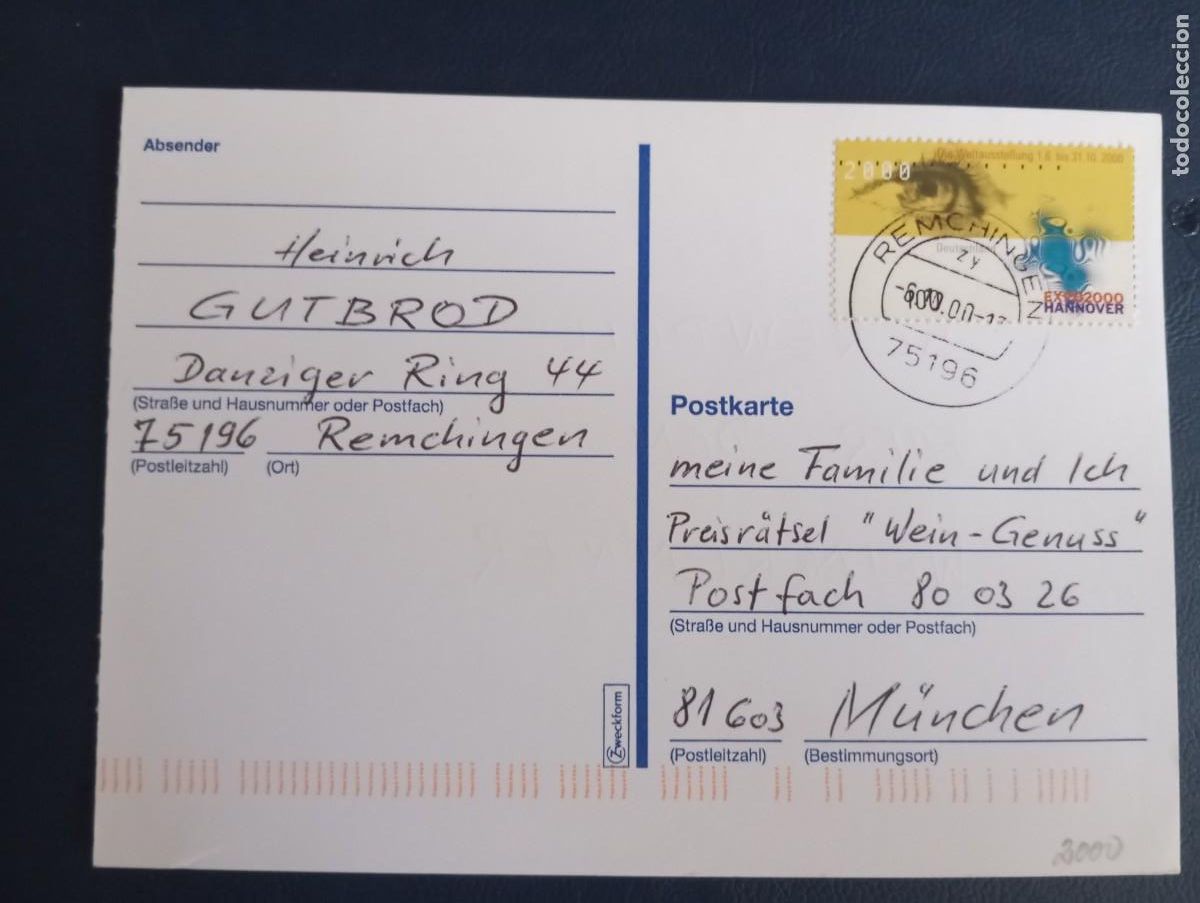 Absender
Heinrich
GUTBROD
Danziger Ring 44
(Straße und Hausnummer oder Postfach)
75196 Remchingen
(Postleitzahl) (Ort)
Zweckform
Die Weltausstellung 1.6. bis 31.10. 2000
2000
Deutschland
EXPO2000
HANNOVER
REMCHINGEN
zy
75196
Postkarte
meine Familie und Ich
Preisrätsel "Wein-Genuss"
Postfach 80 03 26
(Straße und Hausnummer oder Postfach)
81603 München
(Postleitzahl) (Bestimmungsort)
2000
todocoleccion